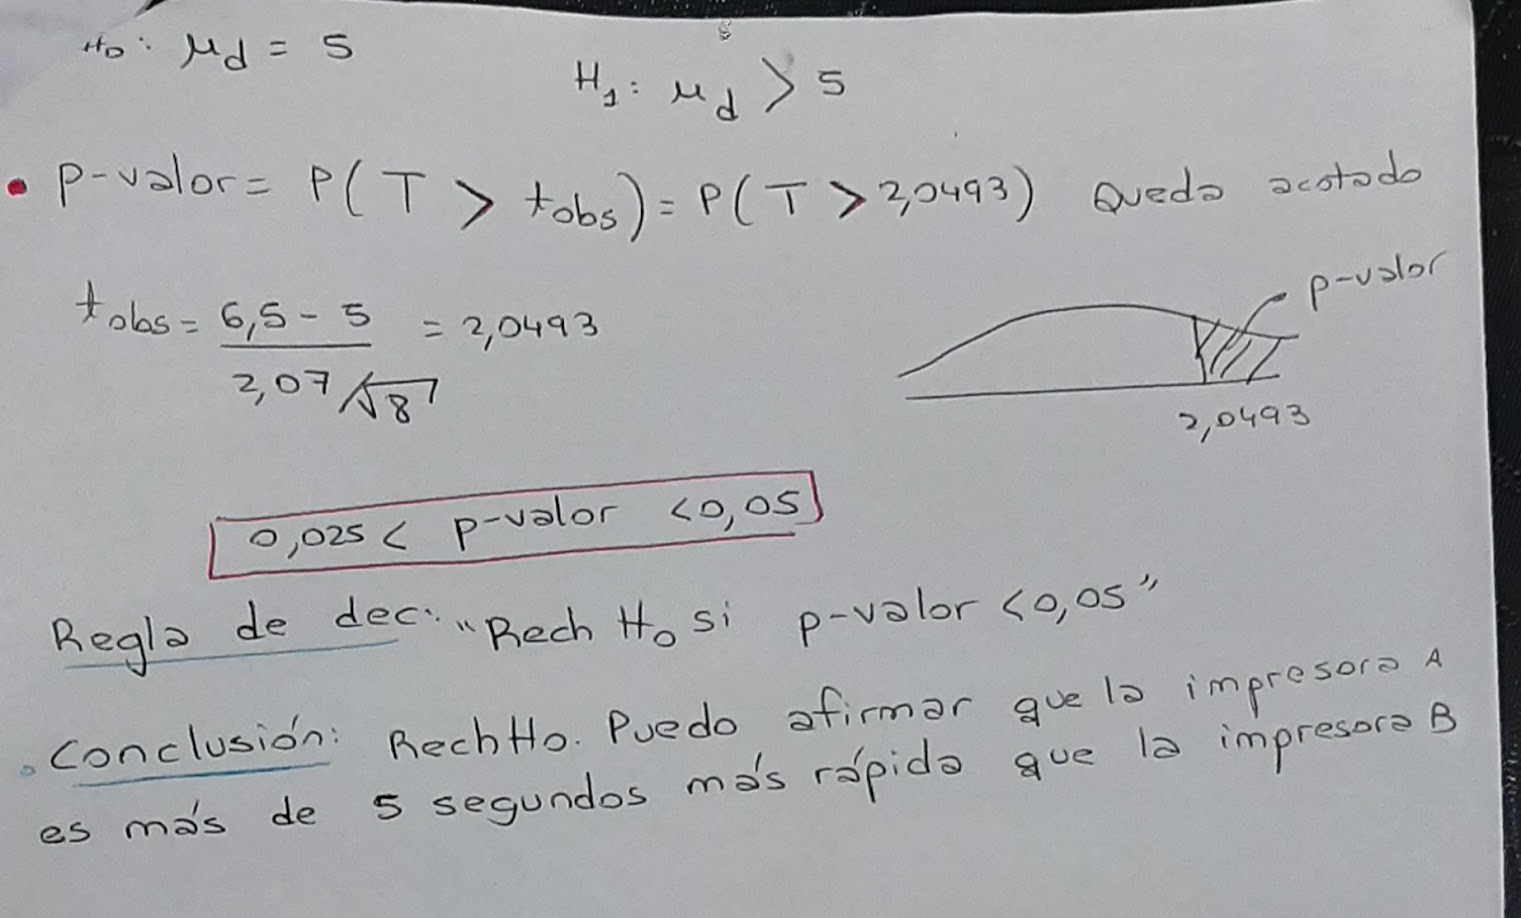 H₀: μd = 5
H₁: μd > 5
• P-valor = P(T > tobs) = P(T > 2,0493) Queda acotado
tobs = 6,5 - 5 / 2,07/√8 = 2,0493
p-valor
2,0493
0,025 < p-valor < 0,05
Regla de dec: "Rech H₀ si p-valor < 0,05"
. Conclusión: Rech H₀. Puedo afirmar que la impresora A
es más de 5 segundos más rápida que la impresora B